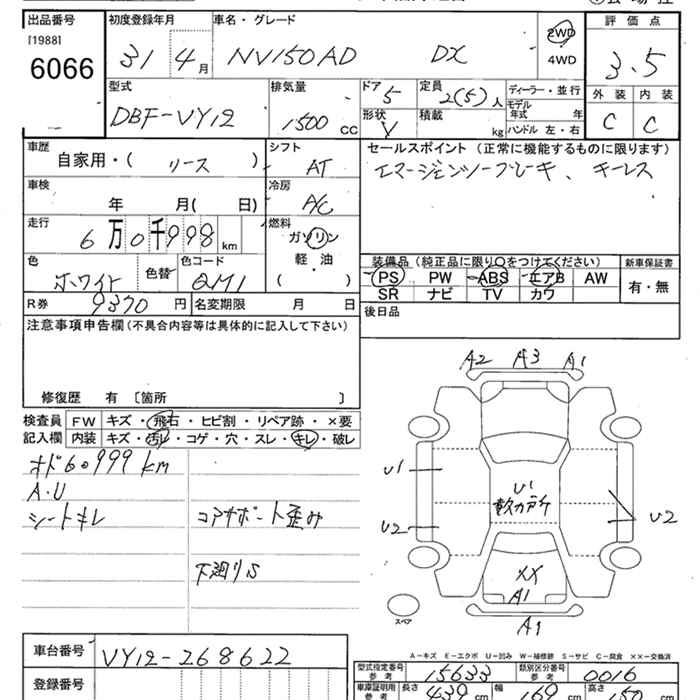 出品番号 初度登録年月 車名・グレード 2WD 評価点
[1988]
6066 31 4月 NV150AD DX 4WD 3.5
型式 排気量 ドア 5 定員 2(5)人 ディーラー・並行 外装 内装
DBF-VY12 1500 CC 形状 V 積載 kg モデル年式 年 C C
ハンドル 左・右
車歴 シフト セールスポイント (正常に機能するものに限ります)
自家用・( リース ) AT エマージェンシーブレーキ、キーレス
車検 冷房
年 月( 日) A/C
走行 燃料
6万0千998km ガソリン
軽・油
( )
色 色替 色コード 装備品(純正品に限り○をつけてください) 新車保証書
ホワイト QM1 PS PW ABS エアB AW 有・無
SR ナビ TV カワ
R券 9370円 名変期限 月 日 後日品
注意事項申告欄(不具合内容等は具体的に記入して下さい)
修復歴 有 〔箇所 〕
検査員 FW キズ・飛石・ヒビ割・リペア跡・×要
記入欄 内装 キズ・汚レ・コゲ・穴・スレ・キレ・破レ
オド60999km
A.U
シートキレ コアサポート歪み
下廻りS
A2 A3 A1
U1 U1
軟カ所
U2 U2
XX
A1
スペア A1
A-キズ E-エクボ U-凹み W-補修跡 S-サビ C-腐食 ××-交換済
車台番号 VY12-268622
型式指定番号 参考 15633 類別区分番号 参考 0016
登録番号 車庫証明用 参考 長さ 439cm 幅 169cm 高さ 150cm